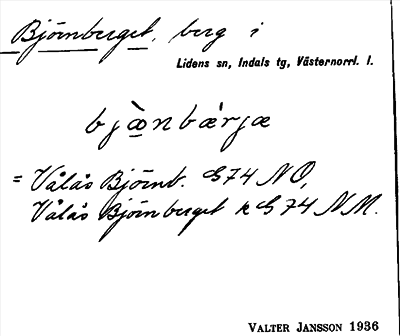 Björnberget, berg i
Lidens sn, Indals tg, Västernorrl. l.
bjὰ̱nbǽrjæ
= Vålås Björnb. G74 NO,
Vålås Björnberget k G74 NM.
VALTER JANSSON 1936